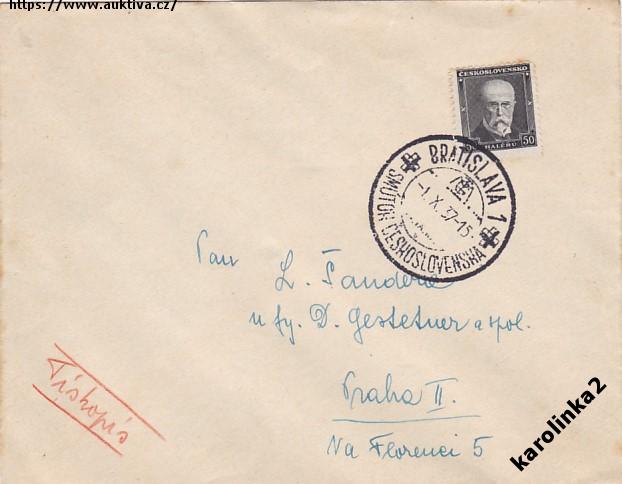 https://www.auktiva.cz/
ČESKOSLOVENSKO
50
HALÉŘŮ
BRATISLAVA 1
-1.X.37-15
SMÚTOK ČESKOSLOVENSKA
Pan
L. Fanderie
u fy. D. Gestetner a spol.
Praha II.
Na Florenci 5
Tiskopis
karolinka2